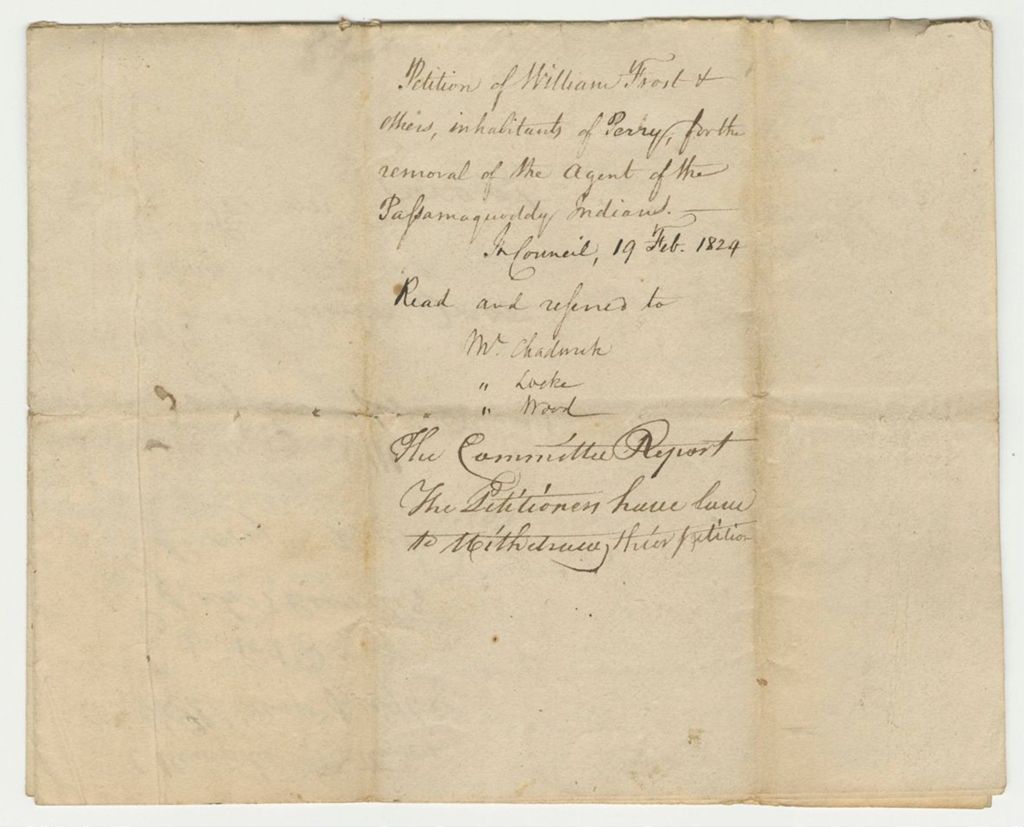 Petition of William Frost &
others, inhabitants of Perry, for the
removal of the Agent of the
Passamaquoddy Indians. —
In Council, 19 Feb. 1824
Read and referred to
Mr. Chadwick
" Locke
" Wood
The Committee Report
The Petitioners have leave
to Withdraw their petition